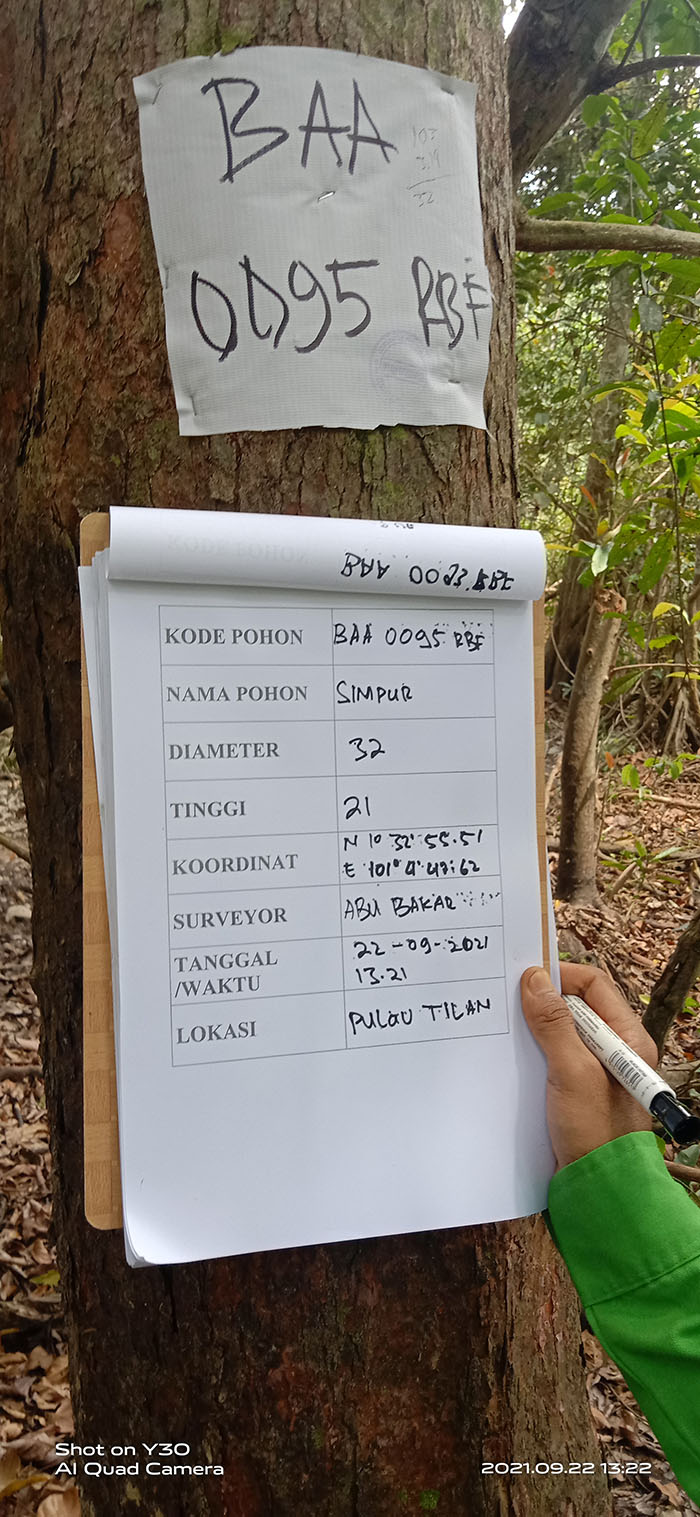 BAA
103
3,14
32
0095 RBF
BAA 0093 RBF
KODE POHON BAA 0095 RBF
NAMA POHON SIMPUR
DIAMETER 32
TINGGI 21
KOORDINAT N 1° 32' 55.51
E 101° 4' 47.62
SURVEYOR ABU BAKAR
TANGGAL 22-09-2021
/WAKTU 13.21
LOKASI PULAU TILAN
Shot on Y30
AI Quad Camera
2021.09.22 13:22